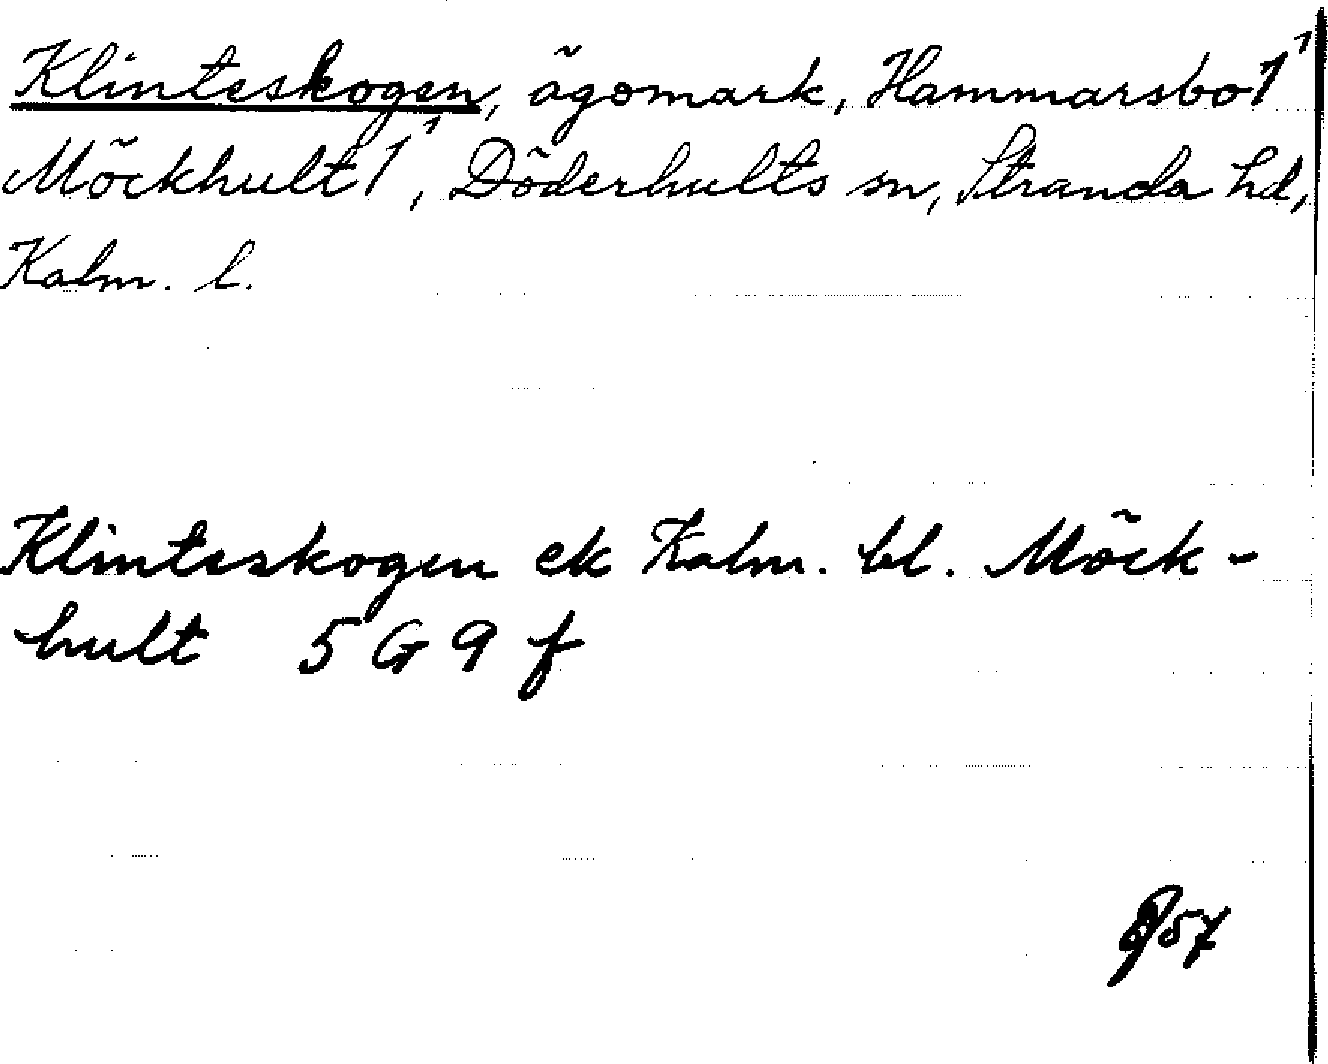 Klinteskogen, ägomark, Hammarsbo 1¹
Möckhult 1¹, Döderhults sn, Stranda hd,
Kalm. l.
Klinteskogen ek Kalm. bl. Möck-
hult 5 G 9 f
57